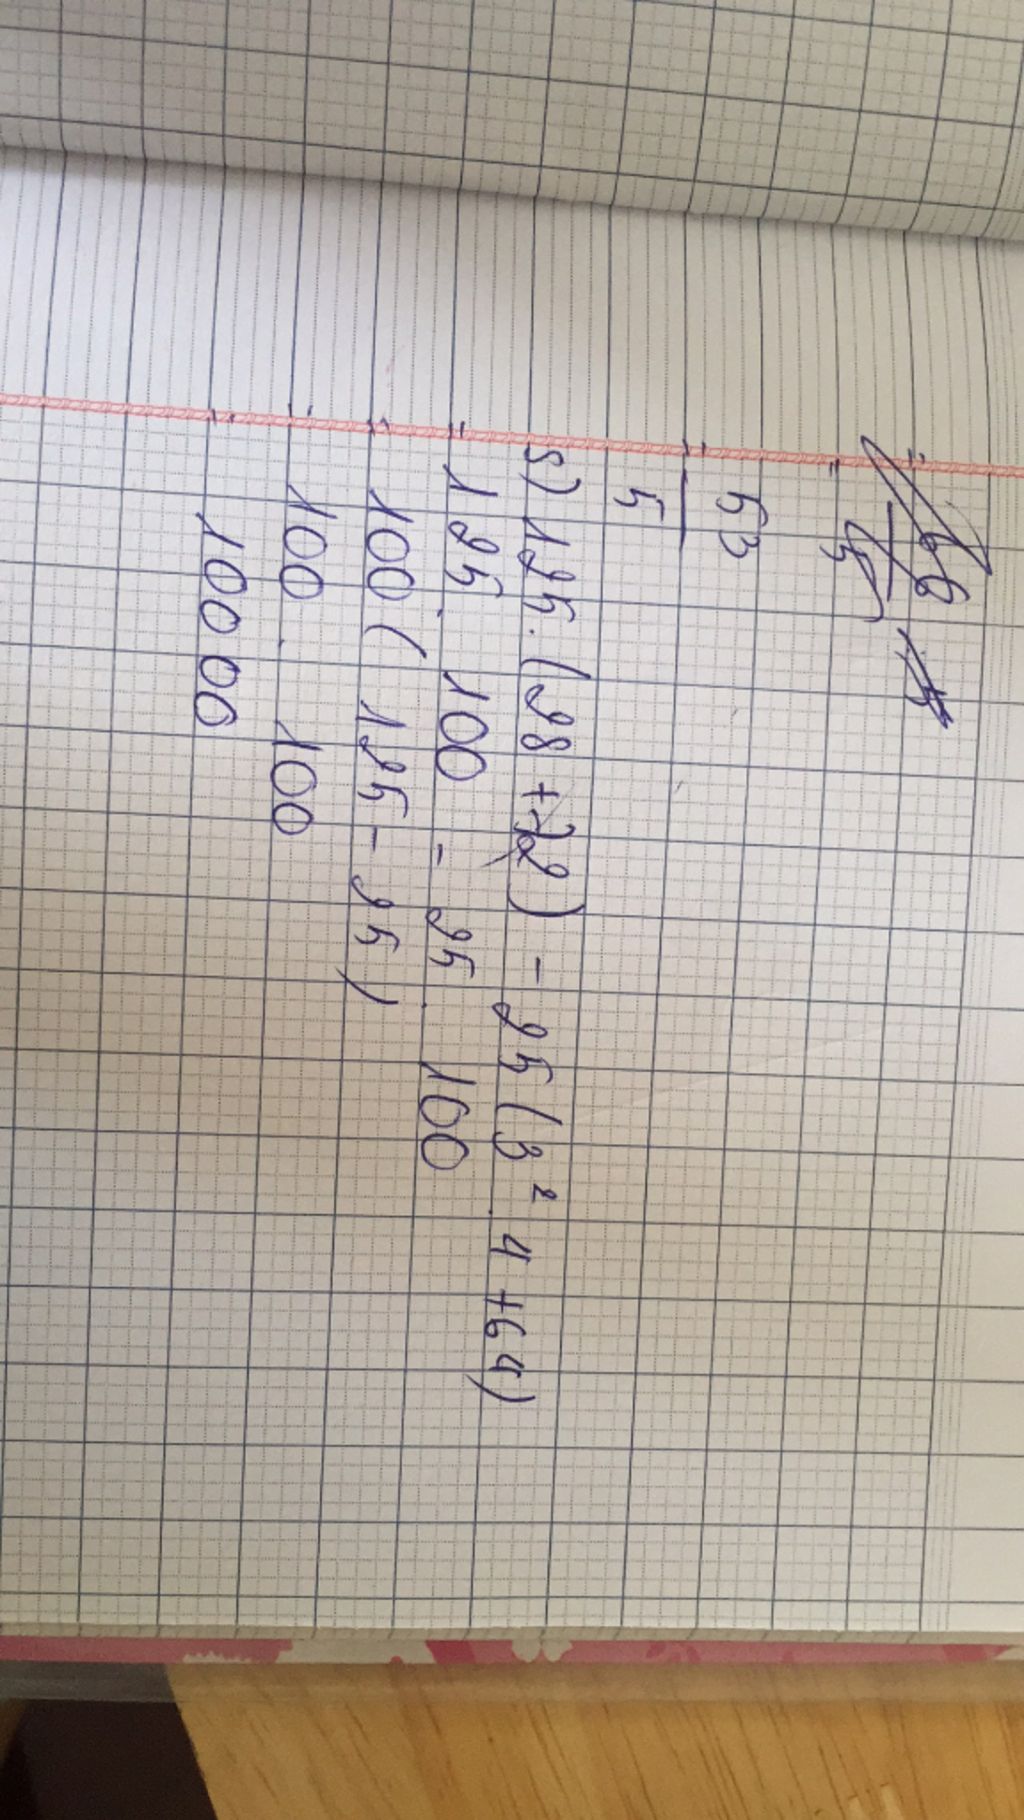 =
=
= 53
5
S) 125. (28 + 72) - 25 (3² . 4 + 64)
= 125 . 100 - 25 . 100
= 100 ( 125 - 25 )
= 100 . 100
= 10000